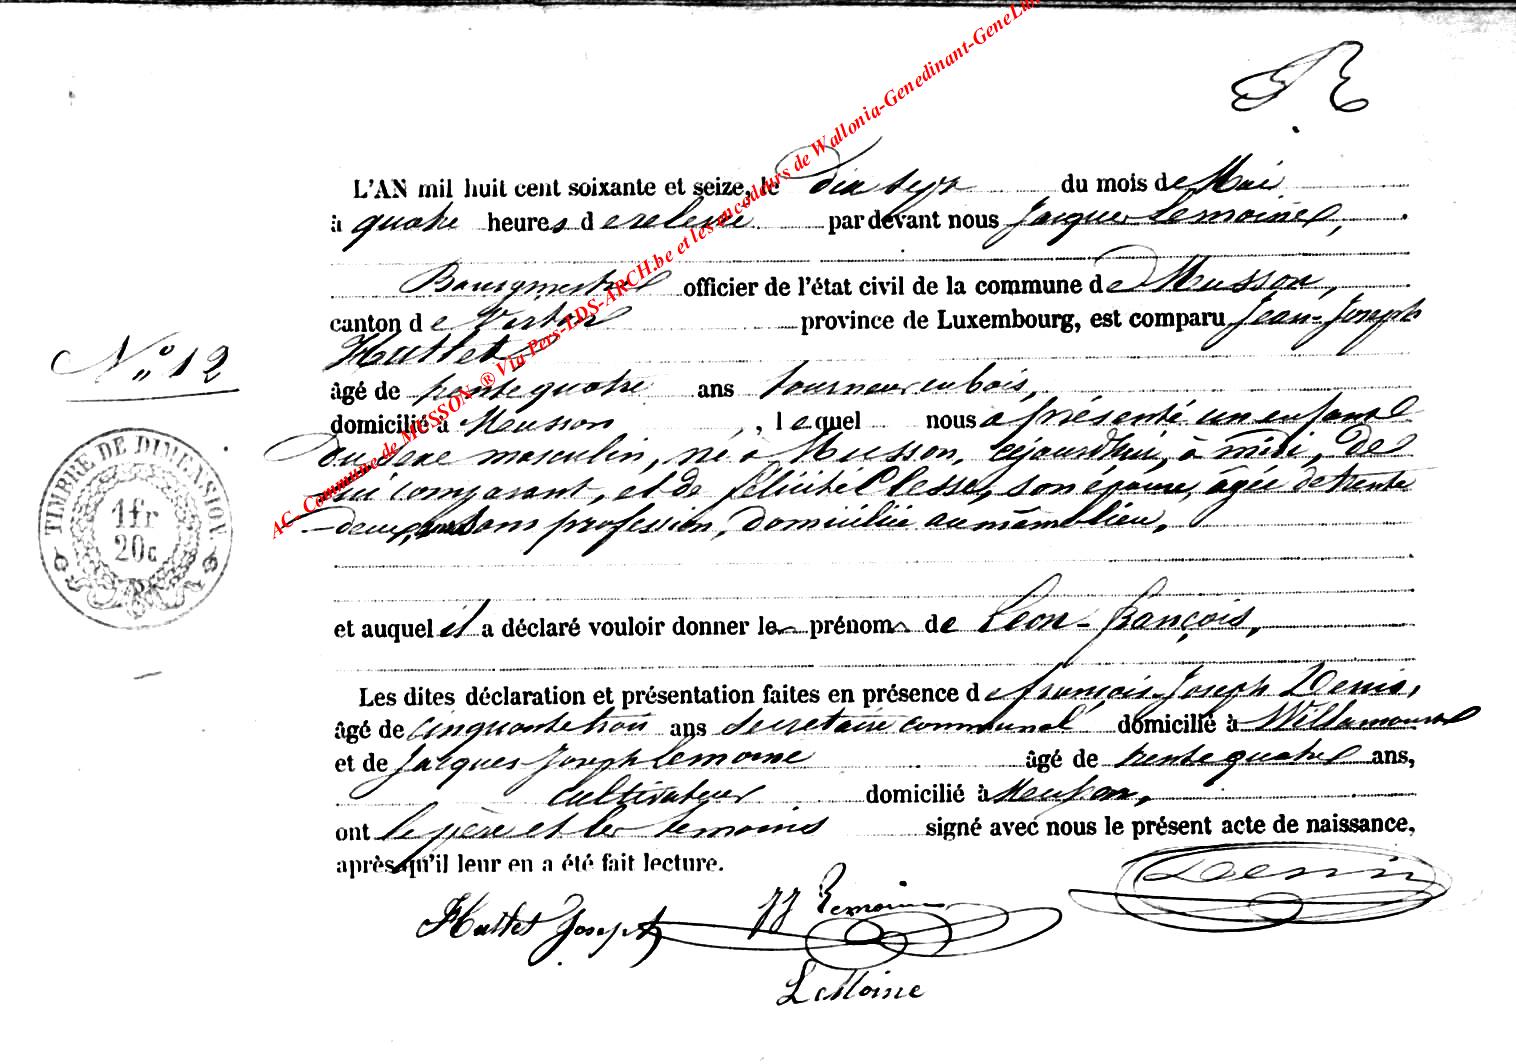 L'AN mil huit cent soixante et seize, le dix sept du mois de Mai
à quatre heures de relevée par devant nous Jacques Lemoine,
Bourgmestre officier de l'état civil de la commune de Musson,
canton de Virton province de Luxembourg, est comparu Jean-Joseph
Huttet
N° 12
âgé de trente quatre ans tourneur en bois,
domicilié à Musson, lequel nous a présenté un enfant
du sexe masculin, né à Musson, cejourd'hui, à midi, de
lui comparant, et de Félicité Clesse, son épouse, âgée de trente
deux ans sans profession, domiciliée au même lieu,
TIMBRE DE DIMENSION
1fr
20c
et auquel il a déclaré vouloir donner le prénom de Léon-François,
Les dites déclaration et présentation faites en présence de François-Joseph Denis,
âgé de cinquante trois ans secrétaire communal domicilié à Willancourt
et de Jacques-Joseph Lemoine âgé de trente quatre ans,
cultivateur domicilié à Musson,
ont le père et les témoins signé avec nous le présent acte de naissance,
après qu'il leur en a été fait lecture.
Huttet Joseph JJ Lemoine Denis
LeMoine
AC- Commune de MUSSON- ® Via Pers-LDS-ARCH.be et les encodeurs de Wallonia-Genedinant-GeneLux